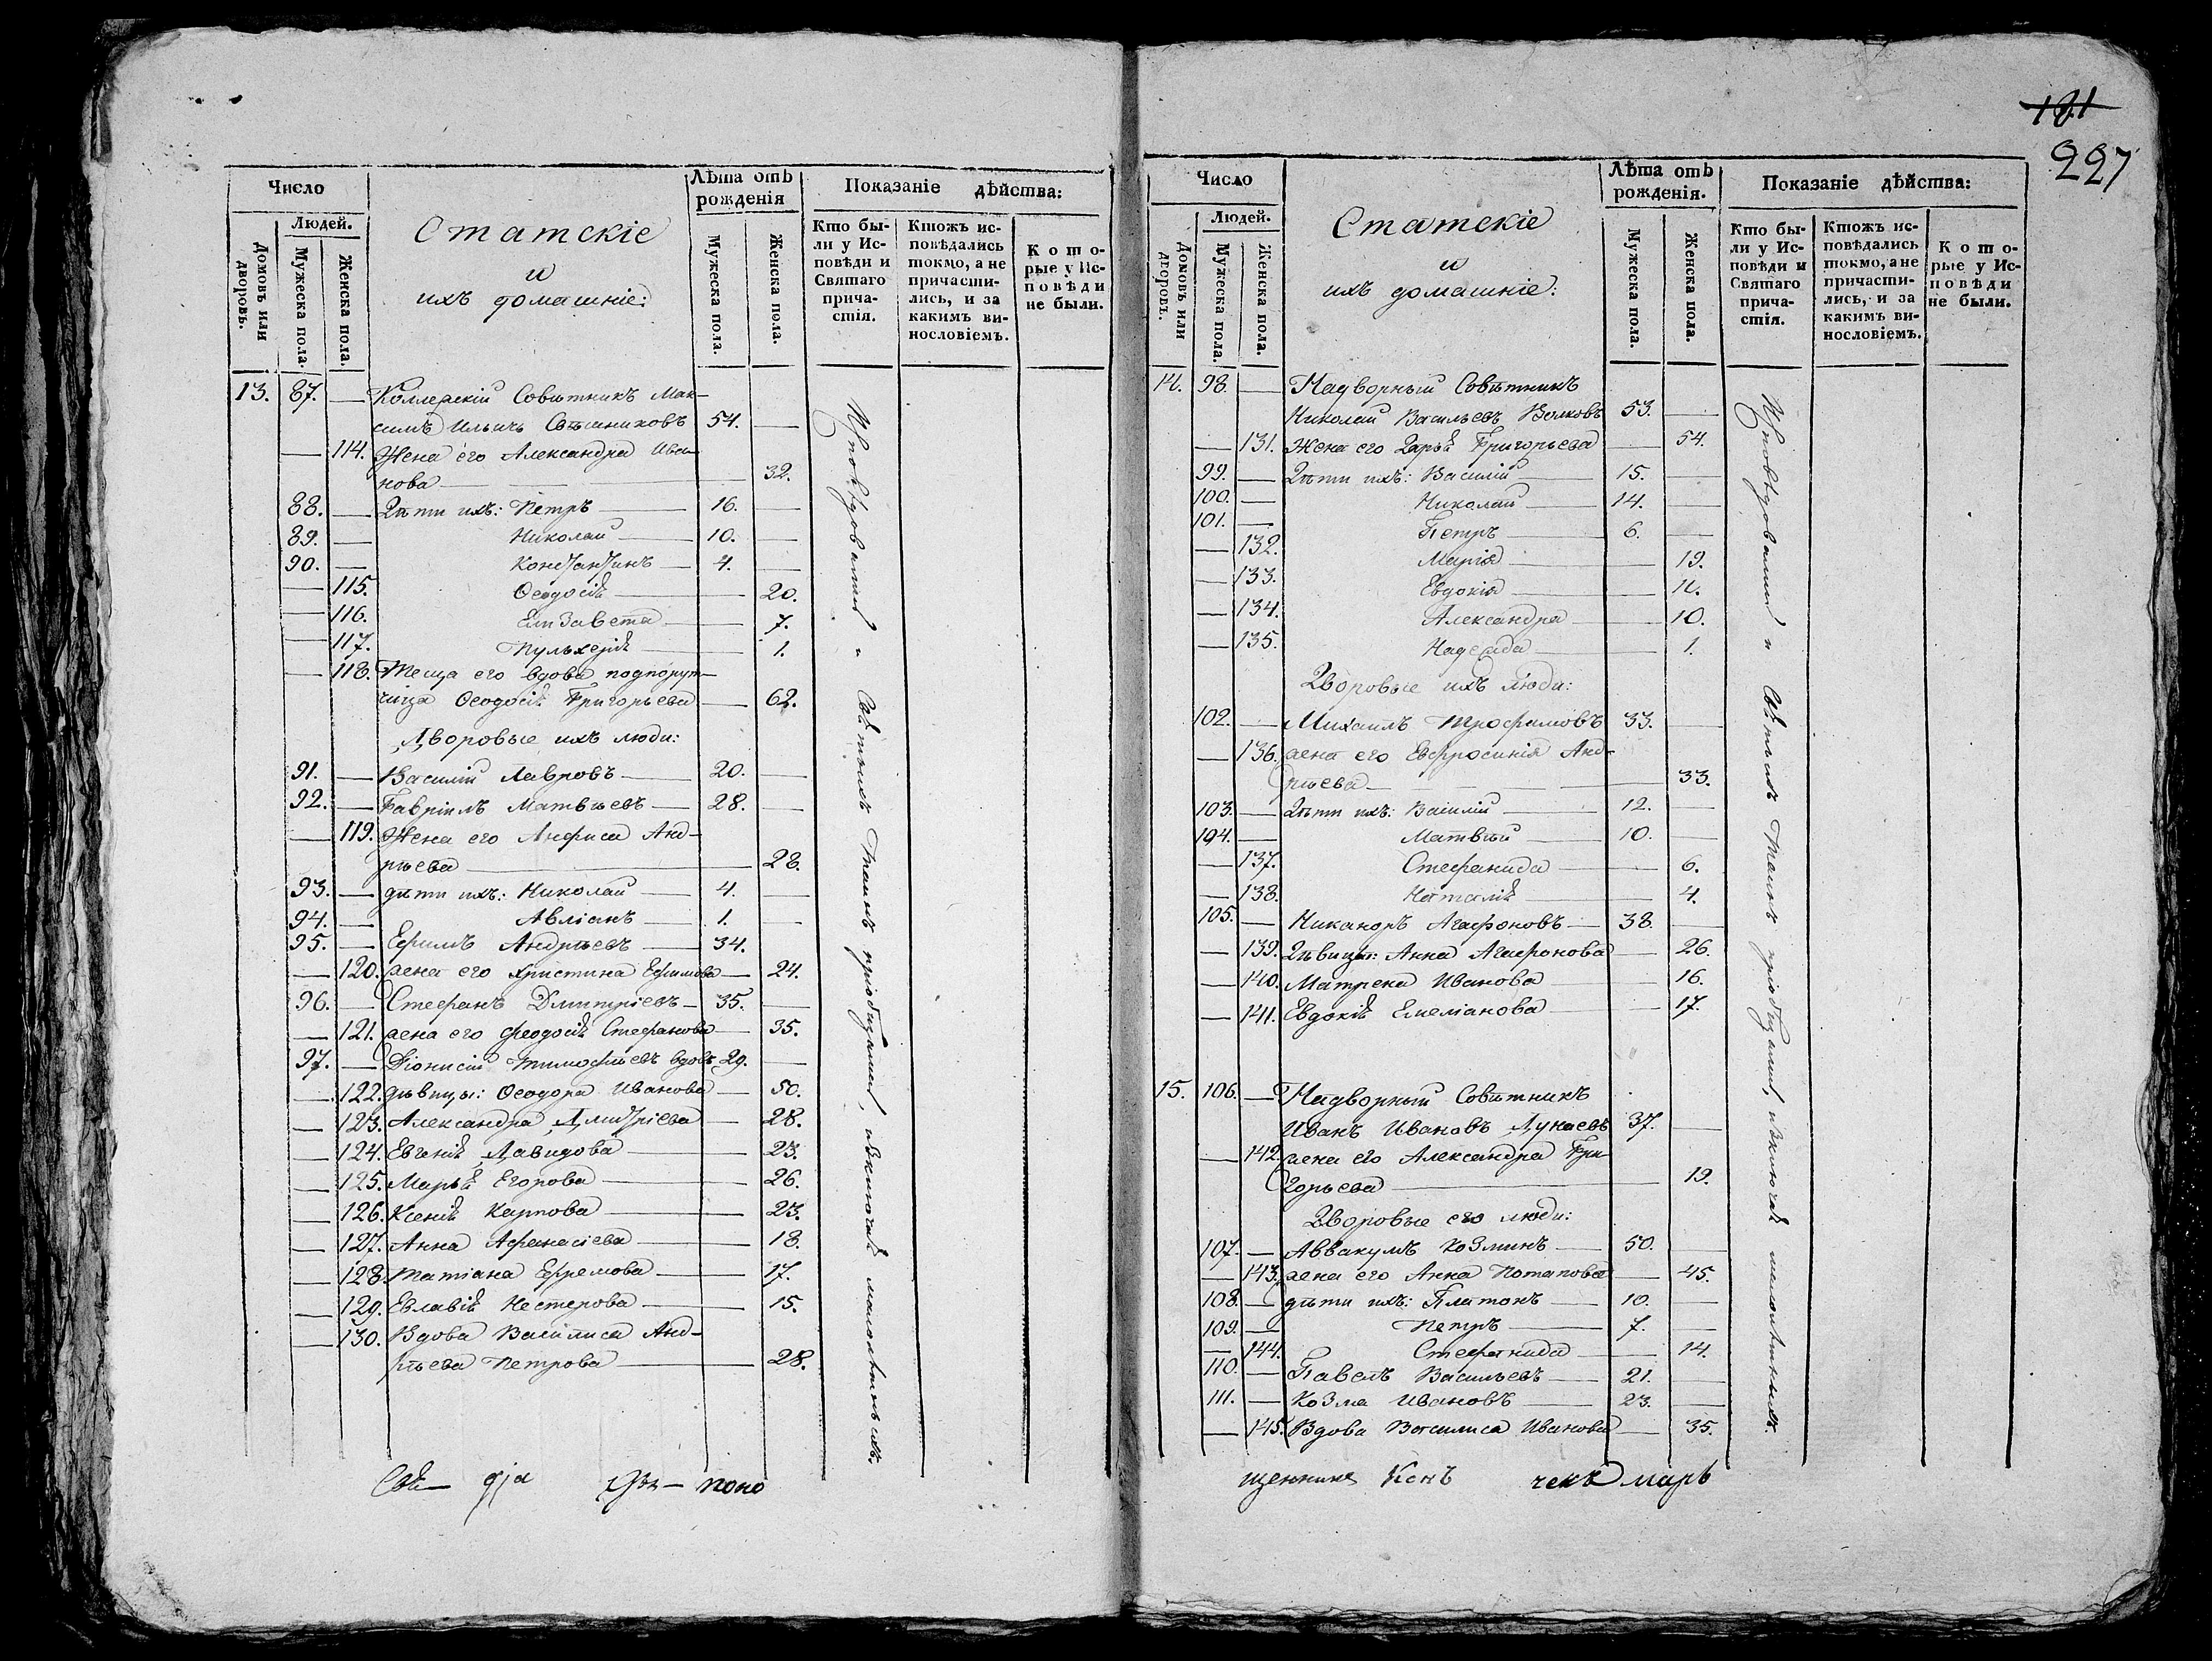 Число
Людей.
Домовъ или дворовъ.
Мужеска пола.
Женска пола.
Статскіе
и
ихъ домашніе:
Лѣта отъ рожденія
Мужеска пола.
Женска пола.
Показаніе дѣйства:
Кто были у Исповѣди и Святаго причастія.
Ктожъ исповѣдались токмо, а не причастились, и за какимъ винословіемъ.
Которые у Исповѣди не были.
13. 87. — Коллежскій Совѣтникъ Мак-
симъ Ильичь Свѣшниковъ 54. —
— 114. Жена его Александра Ива-
нова — 32.
88. — Дѣти ихъ: Петръ — 16. —
89. — Николай — 10. —
90. — Константинъ — 4. —
— 115. Ѳеодосія — 20.
— 116. Елизавета — 7.
— 117. Пульхерія — 1.
— 118. Теща его вдова подпорут-
чица Ѳеодосія Григорьева — 62.
Дворовые ихъ люди:
91. — Василій Лавровъ — 20. —
92. — Гавріилъ Матвѣевъ — 28. —
— 119. Жена его Анфиса Анд-
рѣева — 28.
93. — дѣти ихъ: Николай — 4. —
94. — Авліанъ — 1. —
95. — Ефимъ Андрѣевъ — 34.
— 120. жена его Христина Ефимова — 24.
96. — Стефанъ Дмитріевъ — 35. —
— 121. жена его Феодосія Стефанова — 35.
97. — Діонисій Тимофѣевъ вдовъ 29. —
— 122. дѣвицы: Ѳеодора Иванова — 50.
— 123. Александра Дмитріева — 28.
— 124. Евгенія Давидова — 23.
— 125. Марья Егорова — 26.
— 126. Ксенія Карпова — 23.
— 127. Анна Афанасіева — 18.
— 128. Татіана Ефремова — 17.
— 129. Евлавія Нестерова — 15.
— 130. Вдова Василиса Анд-
рѣева Петрова — 28.
Исповѣдовались и Святыхъ Таинъ пріобщались, исключая малолѣтныхъ.
Свя— дія — поно
181
227
Число
Людей.
Домовъ или дворовъ.
Мужеска пола.
Женска пола.
Статскіе
и
ихъ домашніе:
Лѣта отъ рожденія.
Мужеска пола.
Женска пола.
Показаніе дѣйства:
Кто были у Исповѣди и Святаго причастія.
Ктожъ исповѣдались токмо, а не причастились, и за какимъ винословіемъ.
Которые у Исповѣди не были.
14. 98. — Надворный Совѣтникъ
Николай Васильевъ Волковъ 53. —
— 131. Жена его Дарья Григорьева — 54.
99. — Дѣти ихъ: Василій — 15. —
100. — Николай — 14. —
101. — Петръ — 6. —
— 132. Марія — 19.
— 133. Евдокія — 11.
— 134. Александра — 10.
— 135. Надежда — 1.
Дворовые ихъ люди:
102. — Михаилъ Трофимовъ 33. —
— 136. жена его Евфросинія Анд-
рѣева — 33.
103. — Дѣти ихъ: Василій — 12. —
104. — Матвѣй — 10. —
— 137. Стефанида — 6.
— 138. Наталія — 4.
105. — Никаноръ Агафоновъ — 38. —
— 139. Дѣвицы: Анна Агафонова — 26.
— 140. Матрена Иванова — 16.
— 141. Евдокія Емеліанова — 17.
15. 106. — Надворный Совѣтникъ
Иванъ Ивановъ Дунаевъ 37. —
— 142. жена его Александра Гри-
горьева — 19.
Дворовые его люди:
107. — Аввакумъ Козминъ — 50. —
— 143. жена его Анна Потапова — 45.
108. — дѣти ихъ: Платонъ — 10. —
109. — Петръ — 7. —
— 144. Стефанида — 14.
110. — Павелъ Васильевъ — 21. —
111. — Козма Ивановъ — 23. —
— 145. Вдова Васлиса Иванова — 35.
Исповѣдовались и Святыхъ Таинъ пріобщались, исключая малолѣтныхъ.
щенникъ Конъ марь